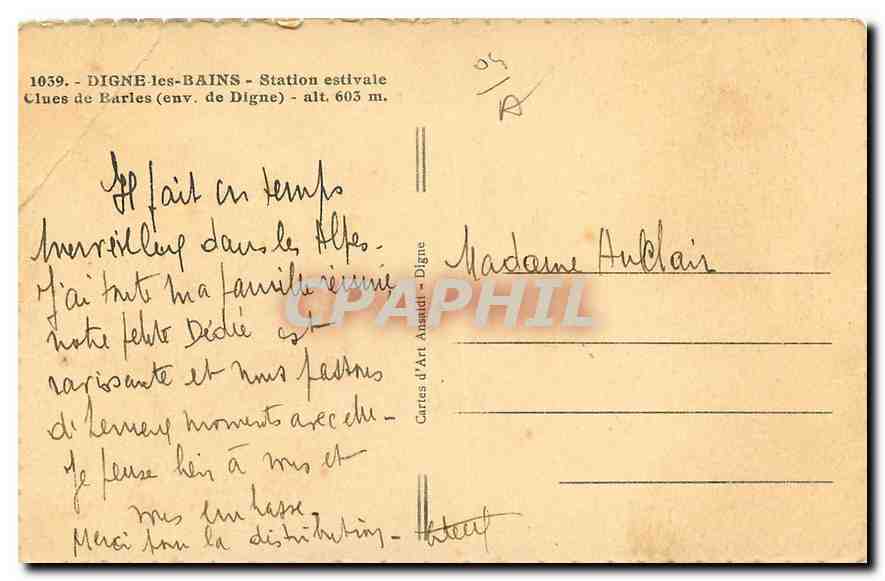 1039. - DIGNE-les-BAINS - Station estivale
Clues de Barles (env. de Digne) - alt. 603 m.
04
A
Il fait un temps
merveilleux dans les Alpes -
J'ai toute ma famille réunie,
notre petite Dédée est
ravissante et nous passons
d'heureux moments avec elle -
Je pense bien à vous et
vous embrasse -
Merci pour la distribution -
Madame Auclair
Cartes d'Art Ansaldi - Digne
CPAPHIL